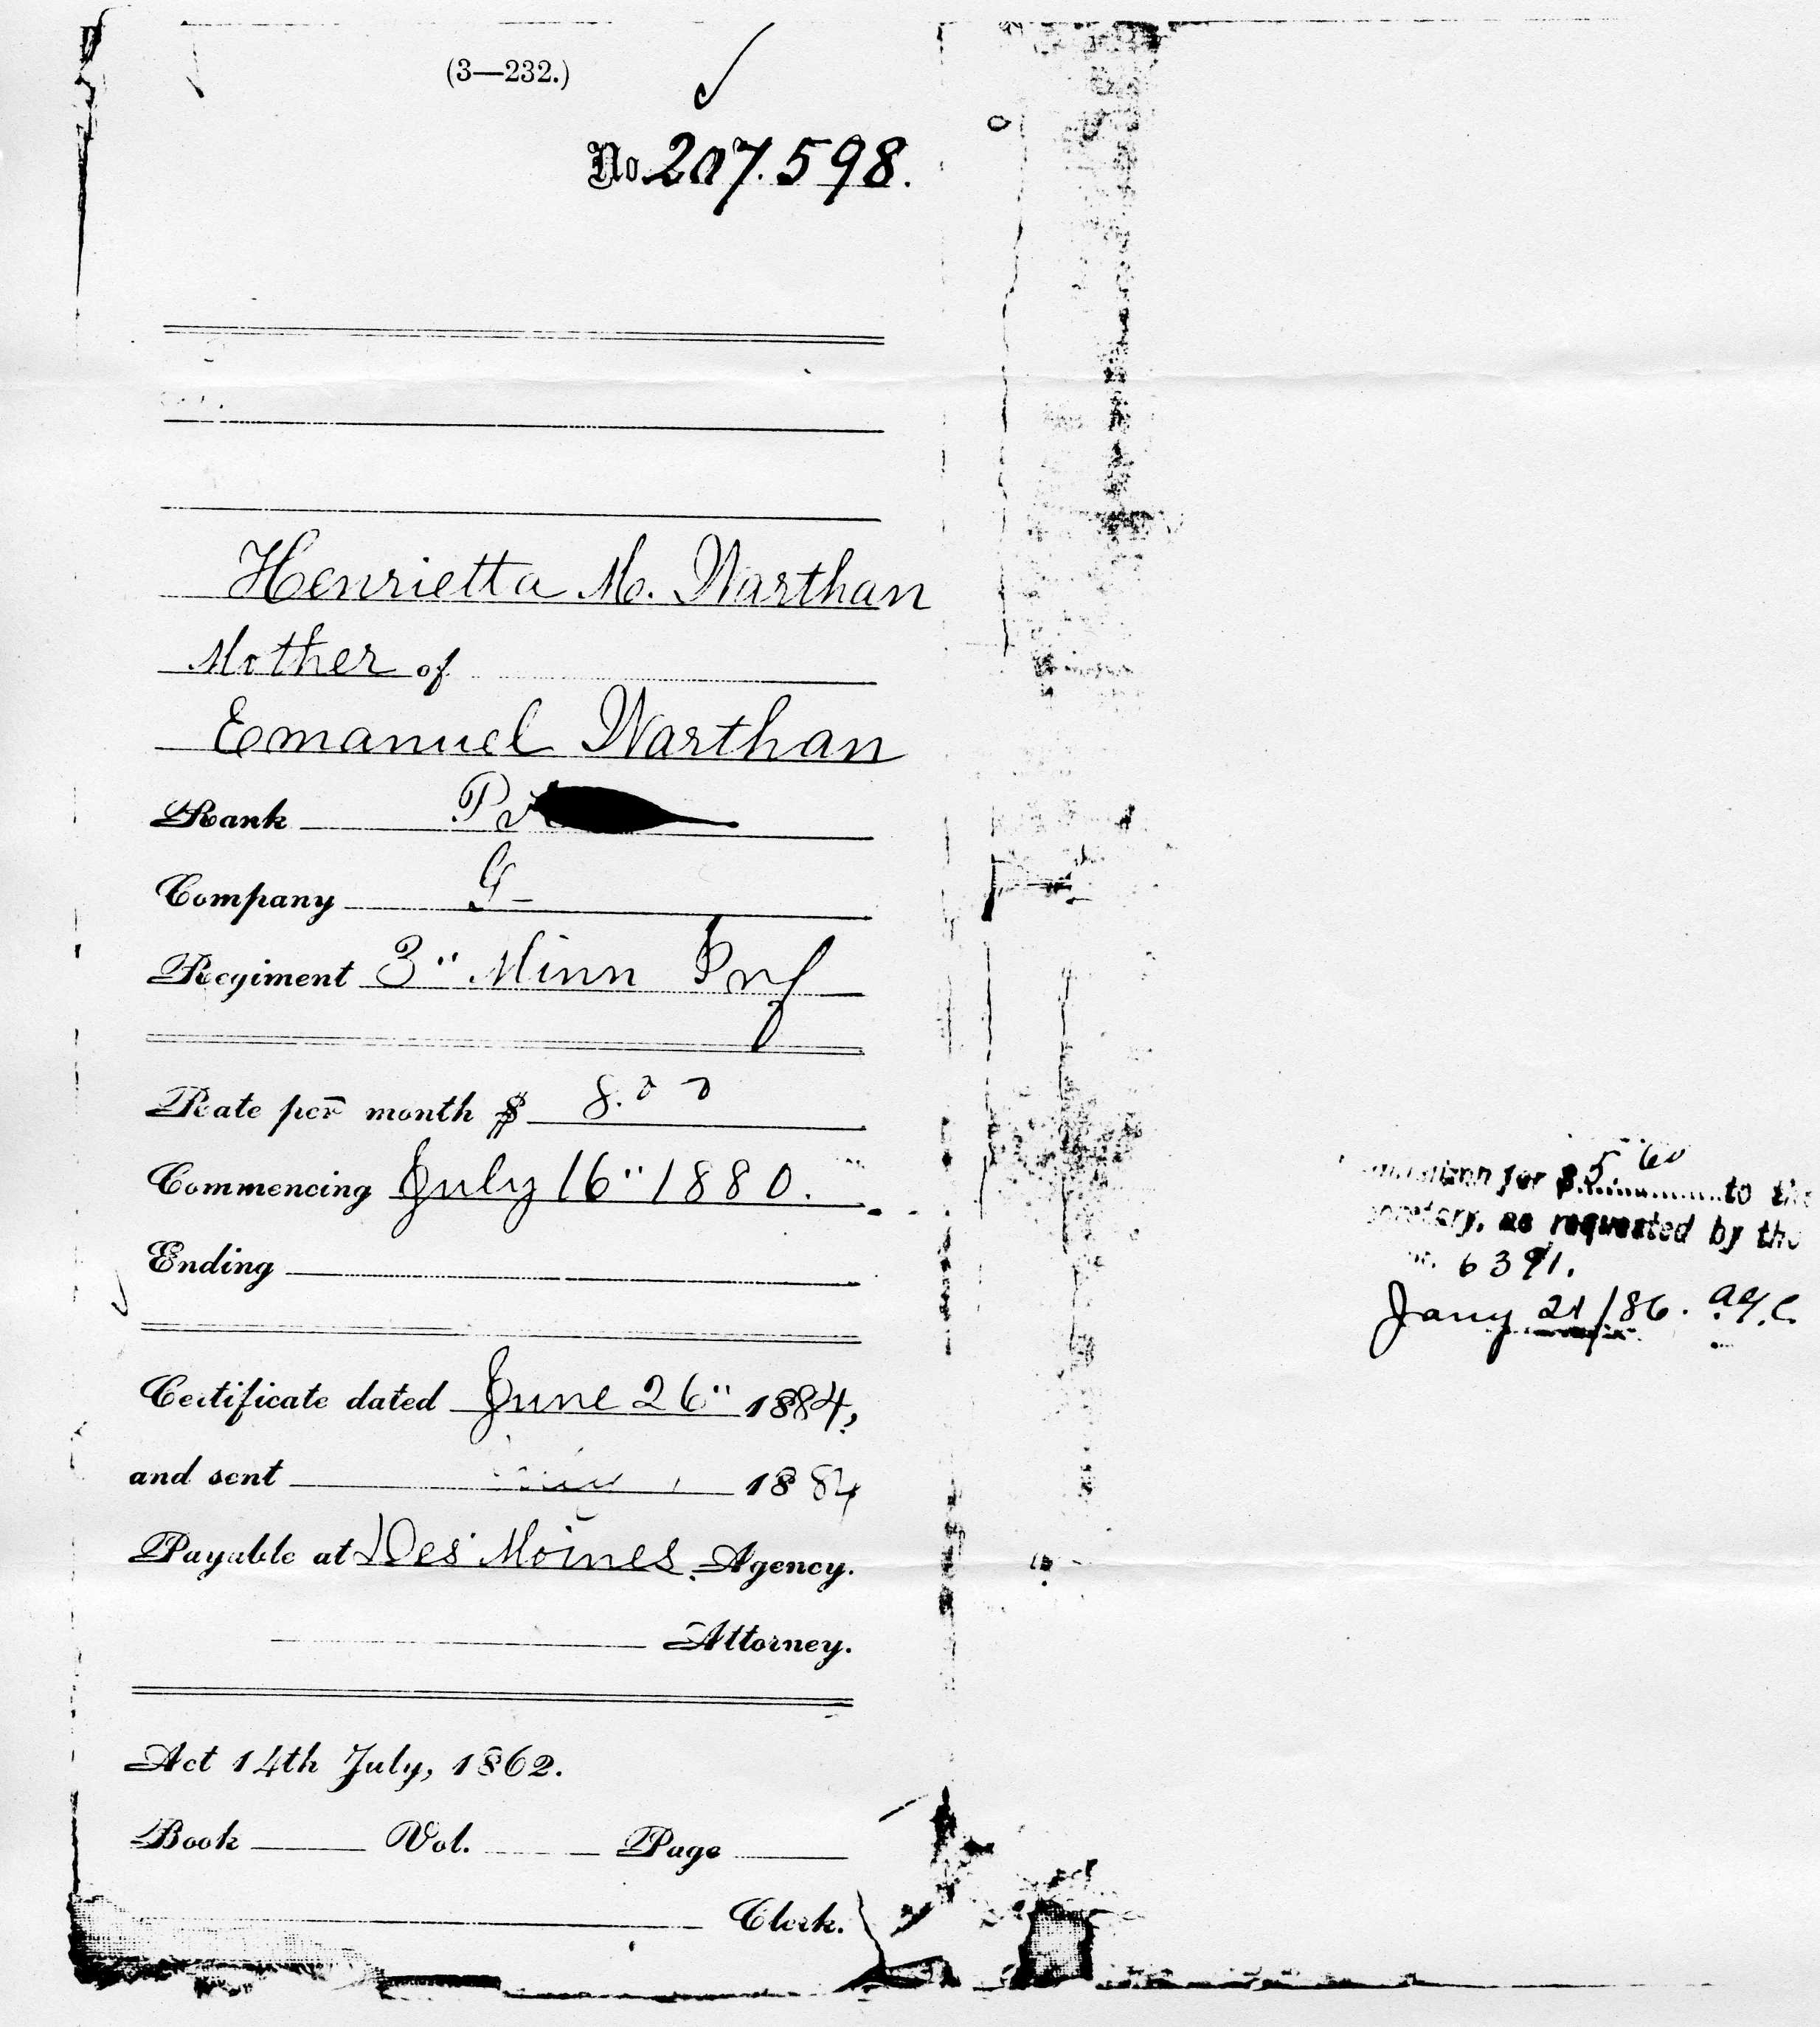 (3—232.)
No. 207.598.
Henrietta M. Warthan
Mother of
Emanuel Warthan
Rank
Company G
Regiment 3" Minn Inf
Rate per month $ 8.00
Commencing July 16" 1880.
Ending
Certificate dated June 26" 1884,
and sent 1884
Payable at Des Moines Agency.
Attorney.
Act 14th July, 1862.
Book Vol. Page
Clerk.
for $5 60 to the
as requested by the
6391.
Jany 21/86.